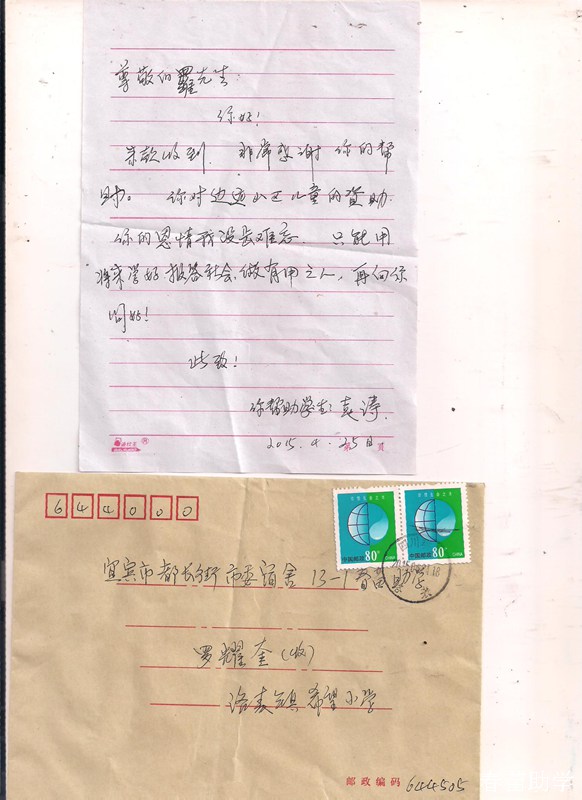 尊敬的羅先生:
你好!
亲款收到. 非常感谢 你的帮
助。 你对边远山区儿童的资助.
你的恩情我没长难忘. 只能用
将来学好.报答社会.做有用之人,再向你
问好!
此致!
你帮助学生: 袁涛.
2015.4.25日
页
644000
中国邮政 80分
中国邮政 80分
宜宾市都长街市委宿舍 13-1 春苗助学
罗耀奎(收)
洛表镇希望小学
邮政编码 644505